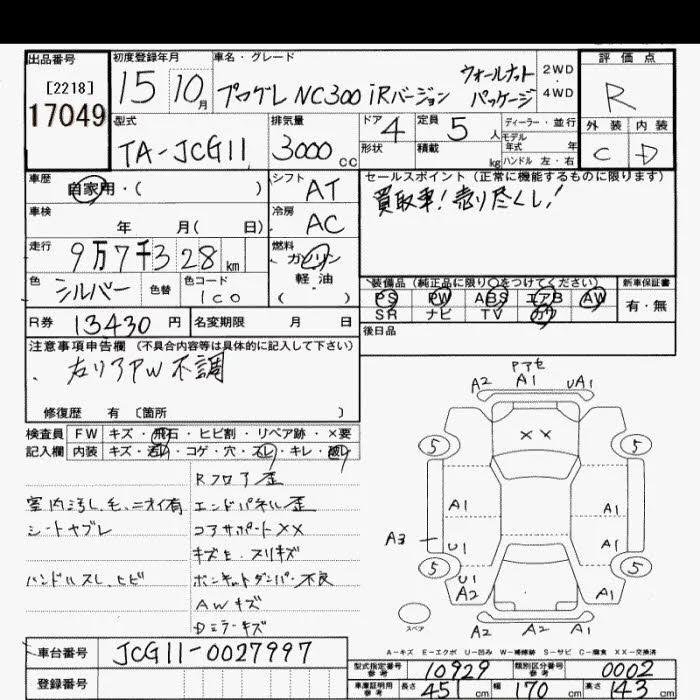 出品番号
[2218]
17049
初度登録年月
15 10月
車名・グレード
プログレ NC300 iRバージョン ウォールナット パッケージ
2WD
・
4WD
評価点
R
外装 内装
C D
型式
TA-JCG11
排気量
3000 cc
ドア 4
形状
定員 5 人
積載 kg
ディーラー・並行
モデル
年式 年
ハンドル 左・右
車歴
自家用・( )
シフト
AT
セールスポイント (正常に機能するものに限ります)
買取車!売り尽くし!
車検
年 月( 日)
冷房
AC
走行
9万7千328km
燃料
ガソリン
軽・油
( )
色
シルバー
色替
色コード
1C0
装備品 (純正品に限り○をつけてください)
PS PW ABS エアB AW
SR ナビ TV カワ
新車保証書
有・無
R券 13430 円
名変期限 月 日
後日品
注意事項申告欄 (不具合内容等は具体的に記入して下さい)
・右リアPW不調
修復歴 有 〔箇所 〕
検査員 FW キズ・飛石・ヒビ割・リペア跡・×要
記入欄 内装 キズ・汚れ・コゲ・穴・スレ・キレ・破れ
Rフロア歪
室内汚し、毛、ニオイ有
エンドパネル歪
シートヤブレ
コアサポートXX
キズE、スリキズ
ハンドルスレ、ヒビ
ボンネットダンパー不良
AWキズ
Dミラーキズ
Pアセ
A2 A1 UA1
XX
5 5
A1 A1
A3 U1 A1
5 5
U1
A2 A1
スペア
A2 A2 A1
A-キズ E-エクボ U-凹み W-補修跡 S-サビ C-腐食 XX-交換済
車台番号 JCG11-0027997
登録番号
型式指定番号
参考
10929
類別区分番号
参考
0002
車庫証明用
参考
長さ 45 cm 幅 170 cm 高さ 143 cm